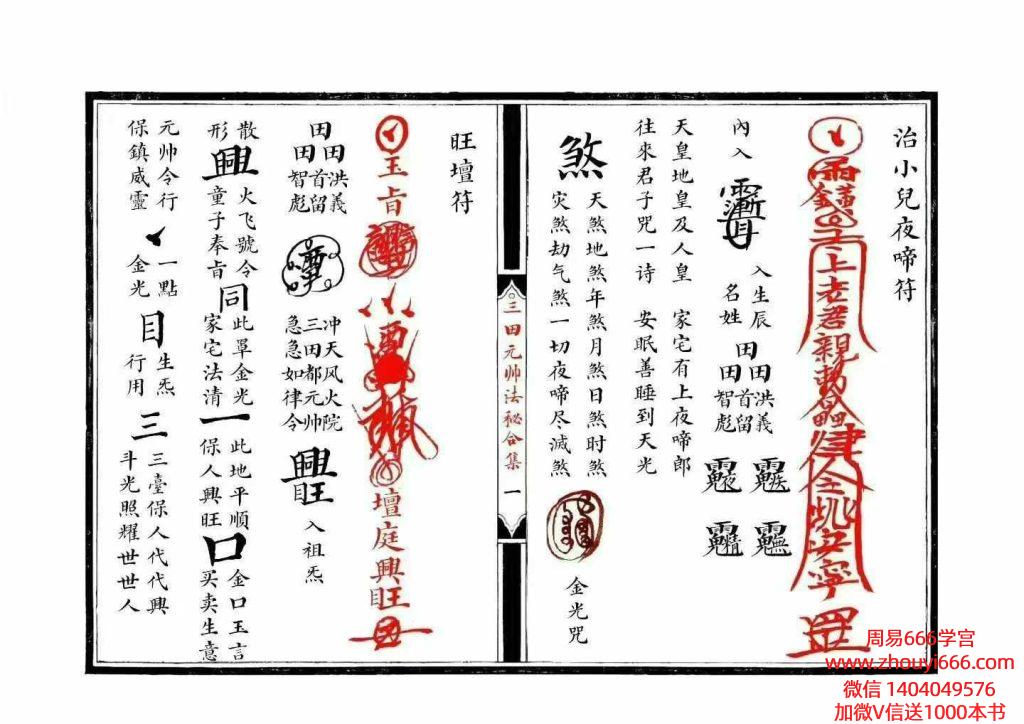 治小兒夜啼符
上老君親勅
安寧
內入
入生辰
名姓
田田洪義
田首留
智彪
天皇地皇及人皇 家宅有上夜啼郎
往來君子咒一诗 安眠善睡到天光
煞
天煞地煞年煞月煞日煞时煞
灾煞劫气煞一切夜啼尽滅煞
金光咒
三田元帅法秘合集 一
旺壇符
玉旨
壇庭興旺
田田洪義
田首留
智彪
冲天风火院
三田都元帅
急急如律令
興旺
入祖炁
散形
興
火飞號令
童子奉旨
同
此單金光
家宅法清
一
此地平順
保人興旺
口
金口玉言
买卖生意
元帅令行
保鎮威靈
一點
金光
目
生炁
行用
三
三臺保人代代興
斗光照耀世世人
周易666学宫
www.zhouyi666.com
微信 1404049576
加微V信送1000本书